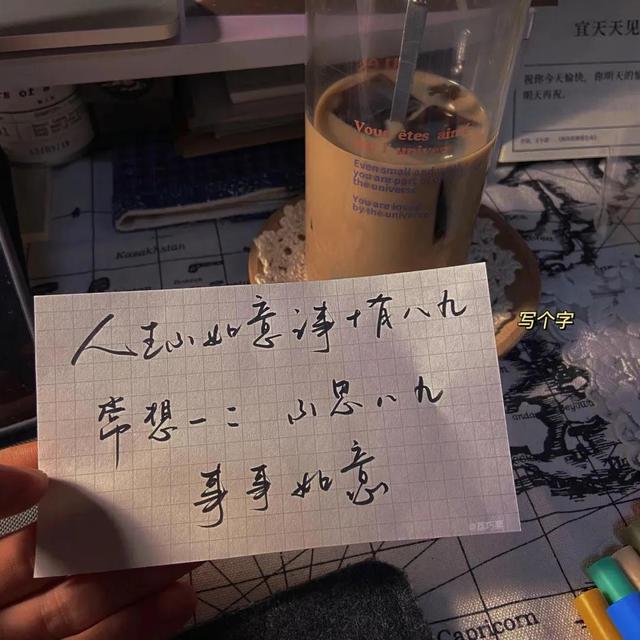 宜天天见
祝你今天愉快，你明天的愉
明天再祝。
Vous êtes aimé
Even small and
you are part of
the universe
You are loved
by the universe
Kazakhstan
写个字
人生不如意诸事十有八九
常想一二 不思八九
事事如意
Capricorn